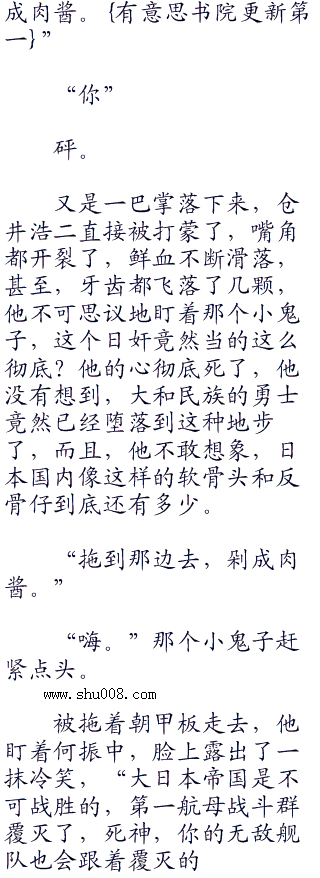 成肉酱。{有意思书院更新第
一}”
“你”
砰。
又是一巴掌落下来，仓
井浩二直接被打蒙了，嘴角
都开裂了，鲜血不断滑落，
甚至，牙齿都飞落了几颗，
他不可思议地盯着那个小鬼
子，这个日奸竟然当的这么
彻底？他的心彻底死了，他
没有想到，大和民族的勇士
竟然已经堕落到这种地步
了，而且，他不敢想象，日
本国内像这样的软骨头和反
骨仔到底还有多少。
“拖到那边去，剁成肉
酱。”
“嗨。”那个小鬼子赶
紧点头。
www.shu008.com
被拖着朝甲板走去，他
盯着何振中，脸上露出了一
抹冷笑，“大日本帝国是不
可战胜的，第一航母战斗群
覆灭了，死神，你的无敌舰
队也会跟着覆灭的